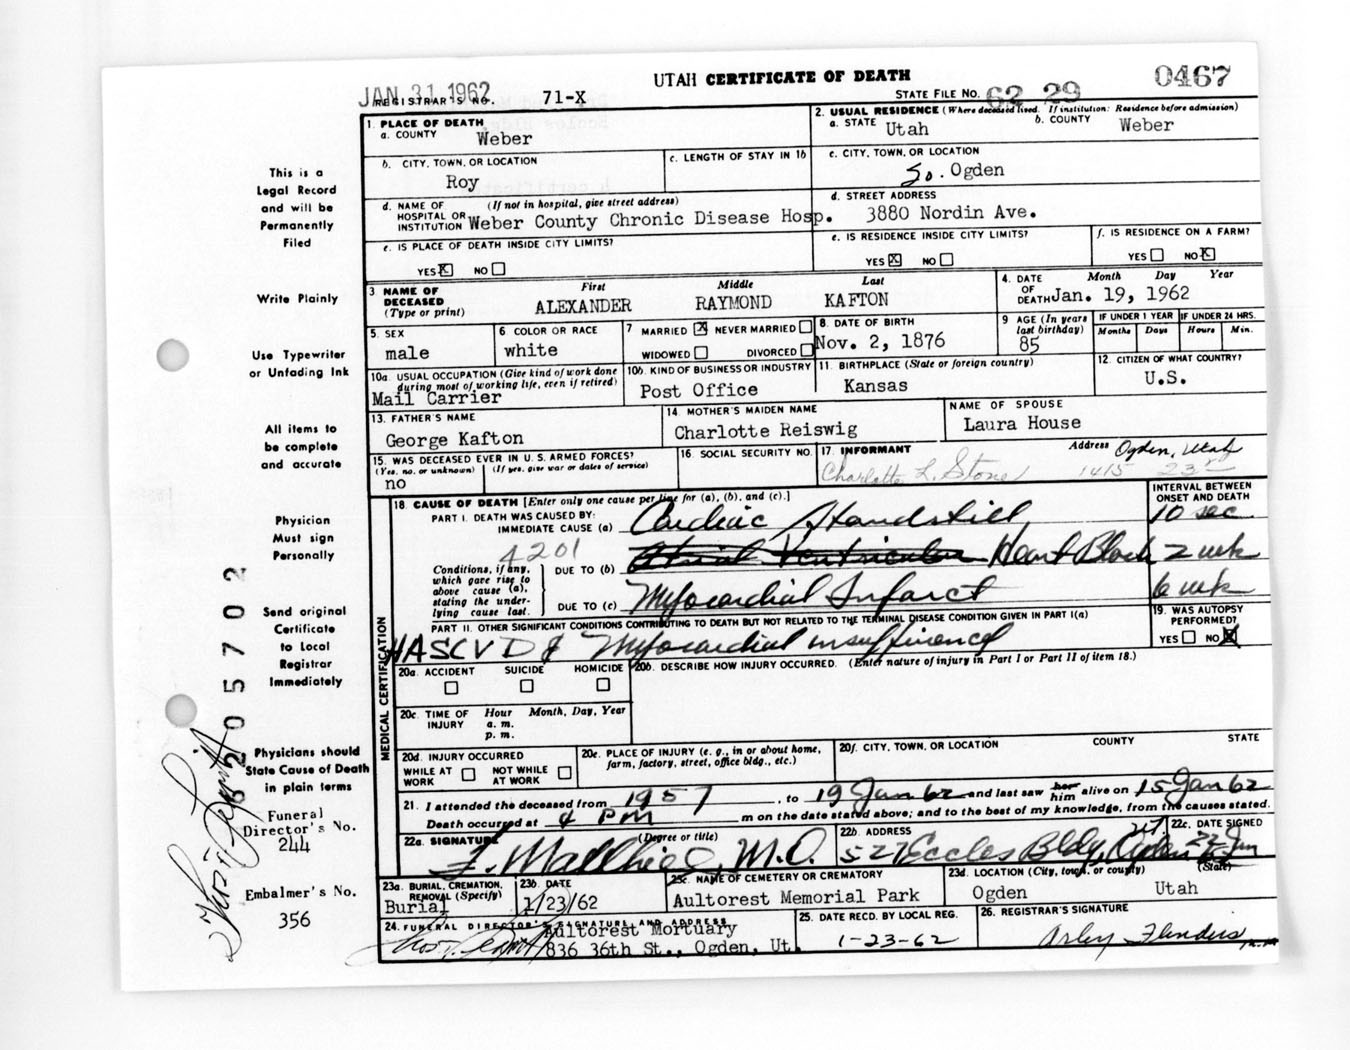 JAN 31 1962
UTAH CERTIFICATE OF DEATH
0467
REGISTRAR'S NO. 71-X
STATE FILE NO. 62 29
1. PLACE OF DEATH
a. COUNTY Weber
2. USUAL RESIDENCE (Where deceased lived. If institution: Residence before admission)
a. STATE Utah b. COUNTY Weber
b. CITY, TOWN, OR LOCATION
Roy
c. LENGTH OF STAY IN 1b
c. CITY, TOWN, OR LOCATION
So. Ogden
d. NAME OF HOSPITAL OR INSTITUTION (If not in hospital, give street address)
Weber County Chronic Disease Hosp.
d. STREET ADDRESS
3880 Nordin Ave.
e. IS PLACE OF DEATH INSIDE CITY LIMITS?
YES X NO
e. IS RESIDENCE INSIDE CITY LIMITS?
YES X NO
f. IS RESIDENCE ON A FARM?
YES NO X
3 NAME OF DECEASED (Type or print)
First Middle Last
ALEXANDER RAYMOND KAFTON
4. DATE OF DEATH Month Day Year
Jan. 19, 1962
5. SEX
male
6 COLOR OR RACE
white
7 MARRIED X NEVER MARRIED
WIDOWED DIVORCED
8. DATE OF BIRTH
Nov. 2, 1876
9 AGE (In years last birthday)
85
IF UNDER 1 YEAR
Months Days
IF UNDER 24 HRS.
Hours Min.
10a. USUAL OCCUPATION (Give kind of work done during most of working life, even if retired)
Mail Carrier
10b. KIND OF BUSINESS OR INDUSTRY
Post Office
11. BIRTHPLACE (State or foreign country)
Kansas
12. CITIZEN OF WHAT COUNTRY?
U.S.
13. FATHER'S NAME
George Kafton
14 MOTHER'S MAIDEN NAME
Charlotte Reiswig
NAME OF SPOUSE
Laura House
15. WAS DECEASED EVER IN U. S. ARMED FORCES?
(Yes, no, or unknown) (If yes, give war or dates of service)
no
16 SOCIAL SECURITY NO.
17. INFORMANT Address Ogden, Utah
Charlotte L. Stone 1415 23rd
18. CAUSE OF DEATH [Enter only one cause per line for (a), (b), and (c).]
INTERVAL BETWEEN ONSET AND DEATH
PART I. DEATH WAS CAUSED BY:
IMMEDIATE CAUSE (a) Cardiac Standstill 10 sec
4201
Conditions, if any, which gave rise to above cause (a), stating the underlying cause last.
DUE TO (b) Atrial Ventricular Heart Block 2 wk
DUE TO (c) Myocardial Infarct 6 wk
PART II. OTHER SIGNIFICANT CONDITIONS CONTRIBUTING TO DEATH BUT NOT RELATED TO THE TERMINAL DISEASE CONDITION GIVEN IN PART I(a)
HASCVD & Myocardial insufficiency
19. WAS AUTOPSY PERFORMED?
YES NO X
MEDICAL CERTIFICATION
20a. ACCIDENT SUICIDE HOMICIDE
20b. DESCRIBE HOW INJURY OCCURRED. (Enter nature of injury in Part I or Part II of item 18.)
20c. TIME OF INJURY Hour Month, Day, Year
a. m.
p. m.
20d. INJURY OCCURRED
WHILE AT WORK NOT WHILE AT WORK
20e. PLACE OF INJURY (e. g., in or about home, farm, factory, street, office bldg., etc.)
20f. CITY, TOWN, OR LOCATION COUNTY STATE
21. I attended the deceased from 1957, to 19 Jan 62 and last saw her him alive on 15 Jan 62
Death occurred at 4 PM m on the date stated above; and to the best of my knowledge, from the causes stated.
22a. SIGNATURE (Degree or title)
M.D.
22b. ADDRESS
527 Eccles Bldg, Ogden Ut.
22c. DATE SIGNED
22 Jan
23a. BURIAL, CREMATION, REMOVAL (Specify)
Burial
23b. DATE
1/23/62
23c. NAME OF CEMETERY OR CREMATORY
Aultorest Memorial Park
23d. LOCATION (City, town, or county) (State)
Ogden Utah
24. FUNERAL DIRECTOR'S SIGNATURE AND ADDRESS
Aultorest Mortuary
836 36th St., Ogden, Ut.
25. DATE RECD. BY LOCAL REG.
1-23-62
26. REGISTRAR'S SIGNATURE
Arley Flinders
This is a
Legal Record
and will be
Permanently
Filed
Write Plainly
Use Typewriter
or Unfading Ink
All items to
be complete
and accurate
Physician
Must sign
Personally
Send original
Certificate
to Local
Registrar
Immediately
Physicians should
State Cause of Death
in plain terms
Funeral
Director's No.
244
Embalmer's No.
356
6205702